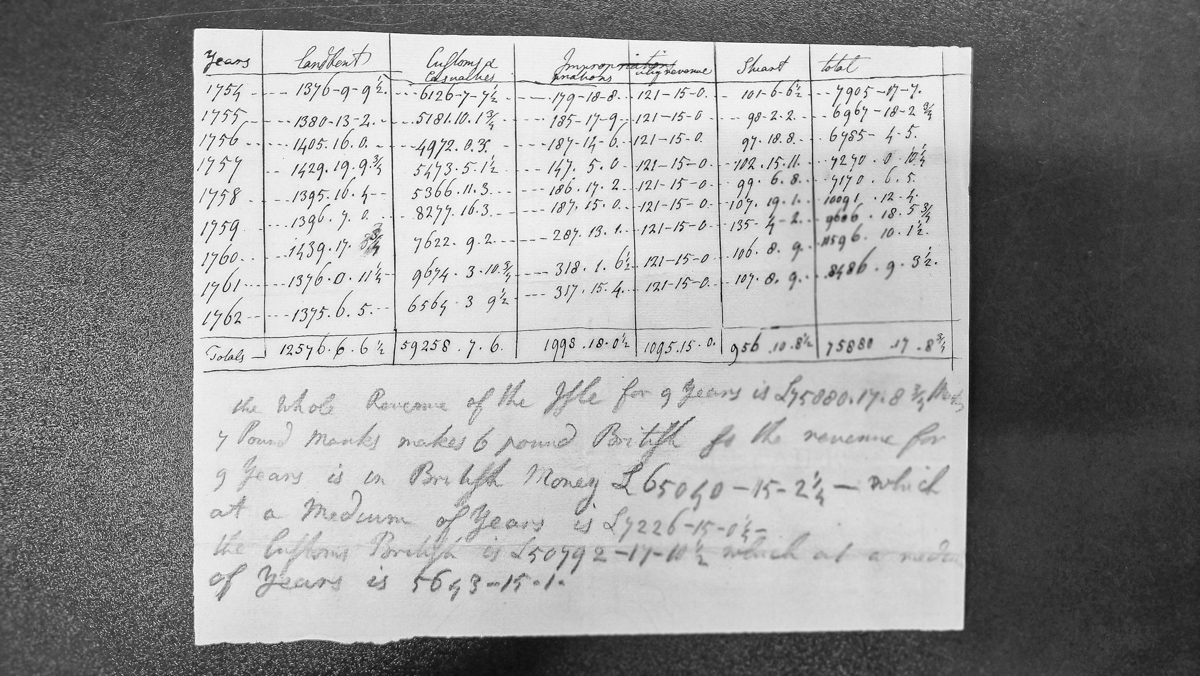 Years Landrent Customs & Casualties Impropriations abby revenue Stuart total
1754 1376-9-9½ 6126-7-7½ 179-18-8. 121-15-0. 101-6-6½ 7905-17-7.
1755 1380-13-2. 5181.10.1¾ 185-17-9. 121-15-0 98-2-2. 6967-18-2¾
1756 1405.16.0. 4972.0.X. 187-14-6. 121-15-0. 97.18.8. 6785-4-5.
1757 1429.19.9¾ 5473-5-1½ 147.5.0 121-15-0. 102.15.11. 7270.0.10¼
1758 1395.16.4 5366.11.3. 186.17.2 121-15-0. 99.6.8. 7170.6.5.
1759 1396.7.0. 8277.16.3. 187.15.0. 121-15-0. 107.19.1. 10091.12.4.
1760 1439.17. 7622.9.2. 287.13.1. 121-15-0. 135-4-2. 9606.18.5¾
1761 1376.0.11¼ 9674.3.10¾ 318.1.6½ 121-15-0 106.8.9. 11596.10.1½.
1762 1375.6.5. 6564.3 9½ 317.15.4. 121-15-0. 107.8.9. 8486.9.3½.
Totals 12576.6.6½ 59258.7.6. 1998.18.0½ 1095.15.0. 956.10.8½ 75880.17.8¾
the Whole Revenue of the Isle for 9 Years is £75880.17.8¾ Manks
7 Pound Manks makes 6 pound British so the revenue for
9 Years is in British Money £65040-15-2¼ - which
at a Medium of Years is £7226-15-0¼-
the Customs British is £50792-17-10½ which at a
of Years is 5643-15-1.